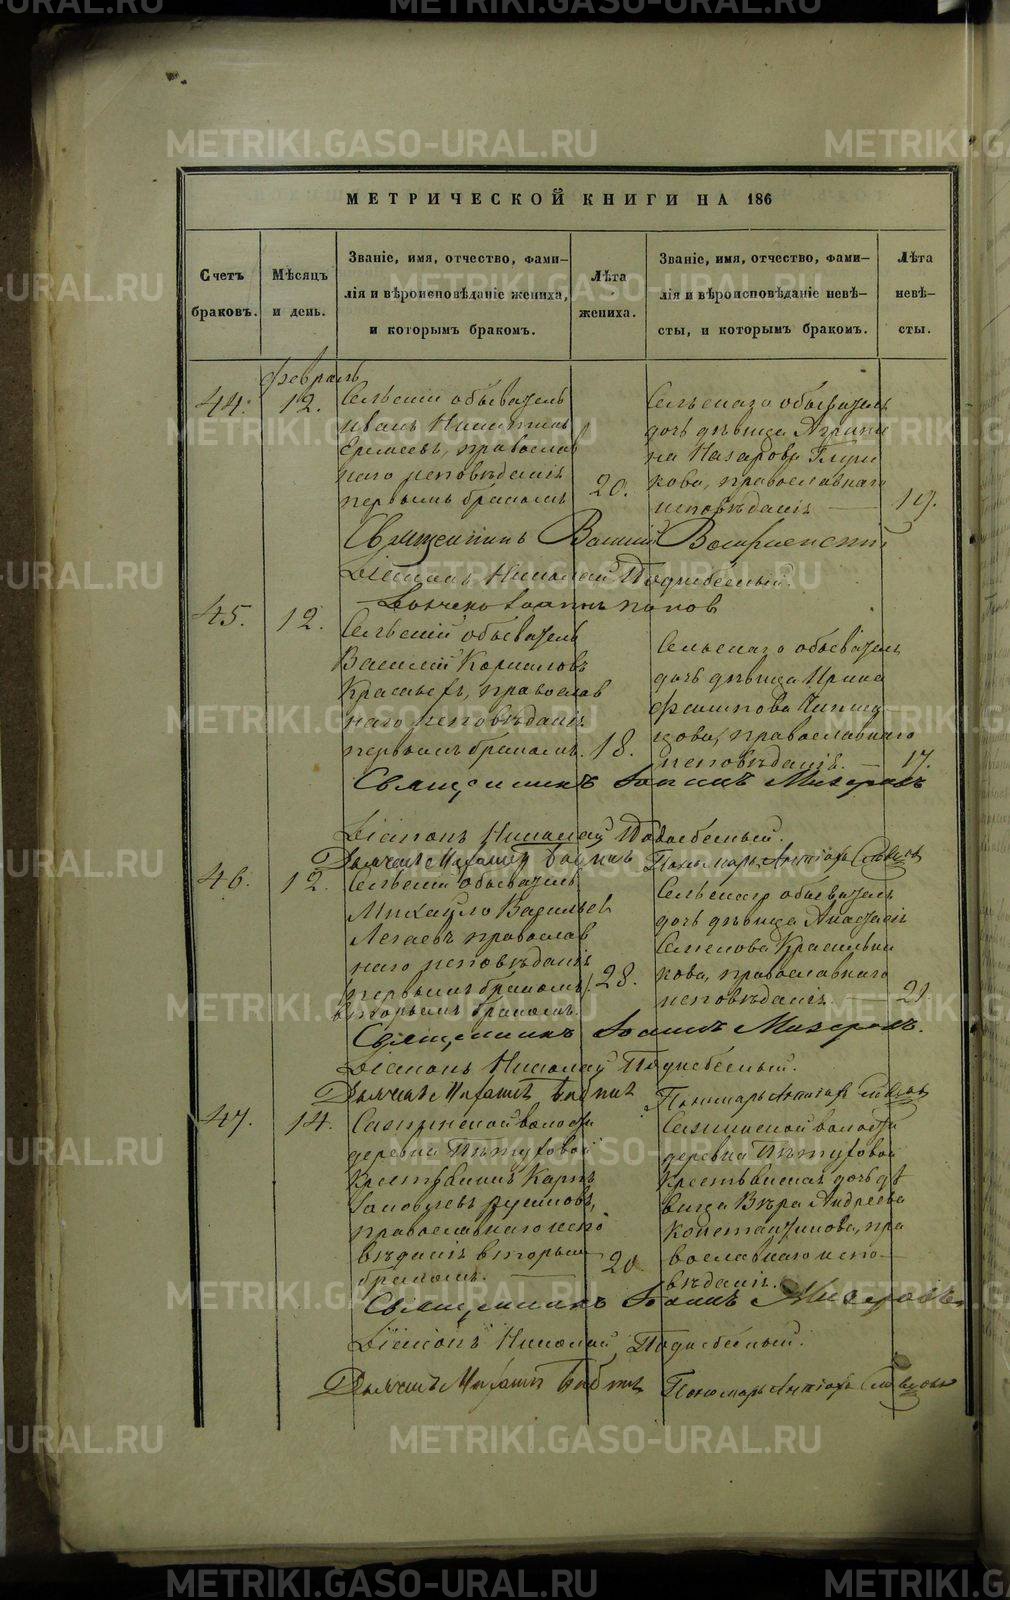 МЕТРИЧЕСКОЙ КНИГИ НА 186
Счетъ браковъ.
Мѣсяцъ и день.
Званіе, имя, отчество, фами-
лія и вѣроисповѣданіе жениха,
и которымъ бракомъ.
Лѣта жениха.
Званіе, имя, отчество, фами-
лія и вѣроисповѣданіе невѣ-
сты, и которымъ бракомъ.
Лѣта невѣ-
сты.
февраль
44. 12.
Сельскій обыватель
Иванъ Никитинъ
Еремеевъ, православ
наго исповѣданія
первымъ бракомъ 20.
Сельскаго обывателя
дочь дѣвица Агрипи
на Назарова Глуш
кова, православнаго
исповѣданія 19.
Священникъ Василій Воскресенскій
Діаконъ Николай Поднебесный.
Іоаннъ Попов
45. 12.
Сельскій обыватель
Василій Корниловъ
православ
наго исповѣданія
первымъ бракомъ. 18.
Сельскаго обывателя
дочь дѣвица Ирина
Филипова
православнаго
исповѣданія. 17.
Священникъ Іоаннъ
Діаконъ Николай Поднебесный.
Дьячекъ Михаилъ Бабинъ Пономарь
46. 12.
Сельскій обыватель
Михайло Васильев
православ
наго исповѣданія
первымъ бракомъ 28.
вторымъ бракомъ.
Сельскаго обывателя
дочь дѣвица Анастасія
Семенова Красильни
кова, православнаго
исповѣданія 21
Священникъ Іоаннъ
Діаконъ Николай Поднебесный.
Дьячекъ Михаилъ Бабинъ Пономарь
47. 14.
волости
деревни Пѣтуховой
крестьянинъ Карпъ
православнаго испо
вѣданія вторым
бракомъ. 20
волости
деревни Пѣтуховой
крестьянская дочь дѣ
вица Вѣра Андреева
Константинова, пра
вославнаго испо-
вѣданія.
Священникъ Іоаннъ
Діаконъ Николай Поднебесный.
Дьячекъ Михаилъ Бабинъ Пономарь
METRIKI.GASO-URAL.RU